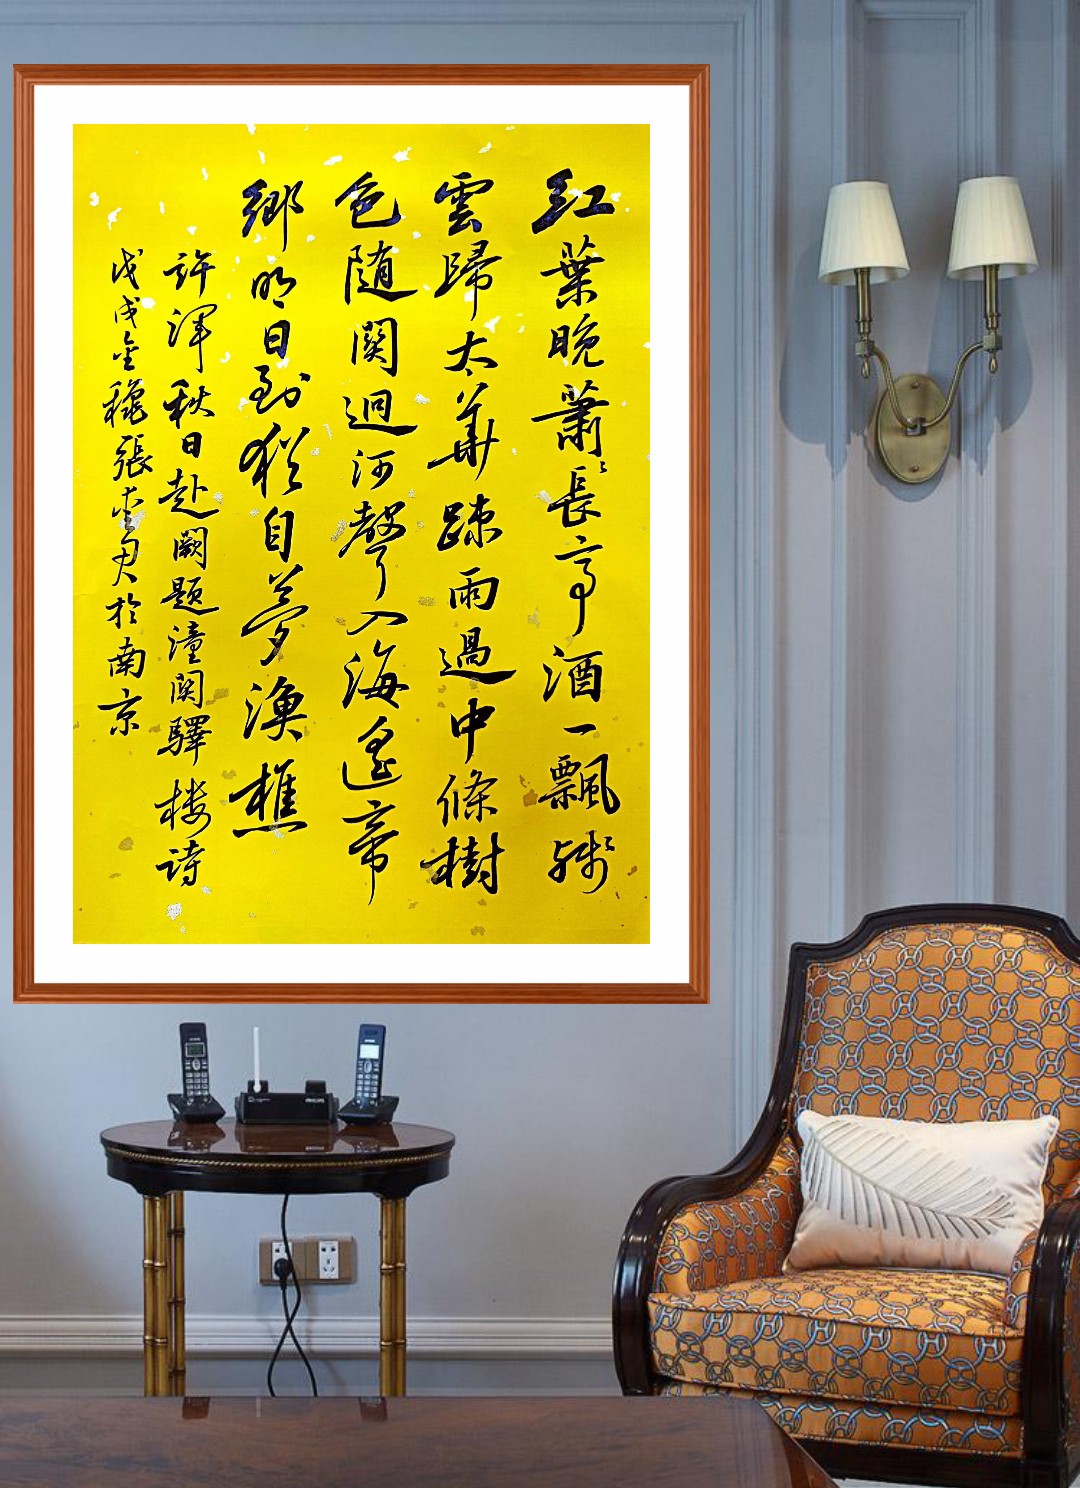 紅葉晚蕭〻長亭酒一飄殘
雲歸太華踈雨過中條樹
色随関迥河聲入海遙帝
鄉明日到猶自夢漁樵
許渾秋日赴闕題潼関驛楼诗
戊戌金穐張君於南京
PHILIPS